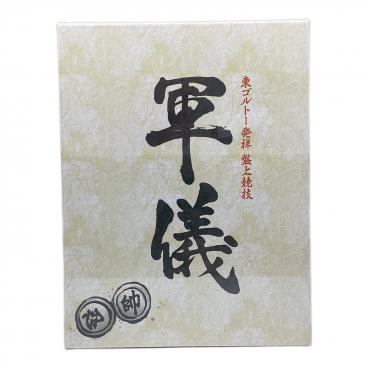 東ゴルトー発祥 盤上競技
軍儀
帥